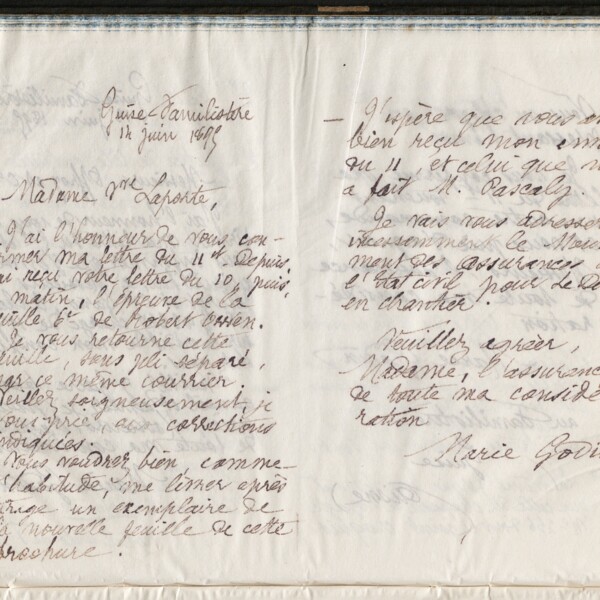 Guise-Familistère
14 juin 1895
Madame Vve Laporte,
J'ai l'honneur de vous con-
firmer ma lettre du 11 ct. Depuis
j'ai reçu votre lettre du 10, puis,
matin, l'épreuve de la
feuille 6e de Robert Owen.
Je vous retourne cette
feuille, sous pli séparé,
par ce même courrier.
Veillez soigneusement, je
vous prie, aux corrections
indiquées.
Vous voudrez bien, comme
d'habitude, me livrer après
tirage un exemplaire de
la nouvelle feuille de cette
brochure.
— J'espère que vous
bien reçu mon
du 11, et celui que
a fait M. Pascaly.
Je vais vous adresser
incessamment le Mouve
ment des assurances
l'Etat civil pour le De
en chantier.
Veuillez agréer,
Madame, l'assurance
de toute ma considé
ration
Marie Godi